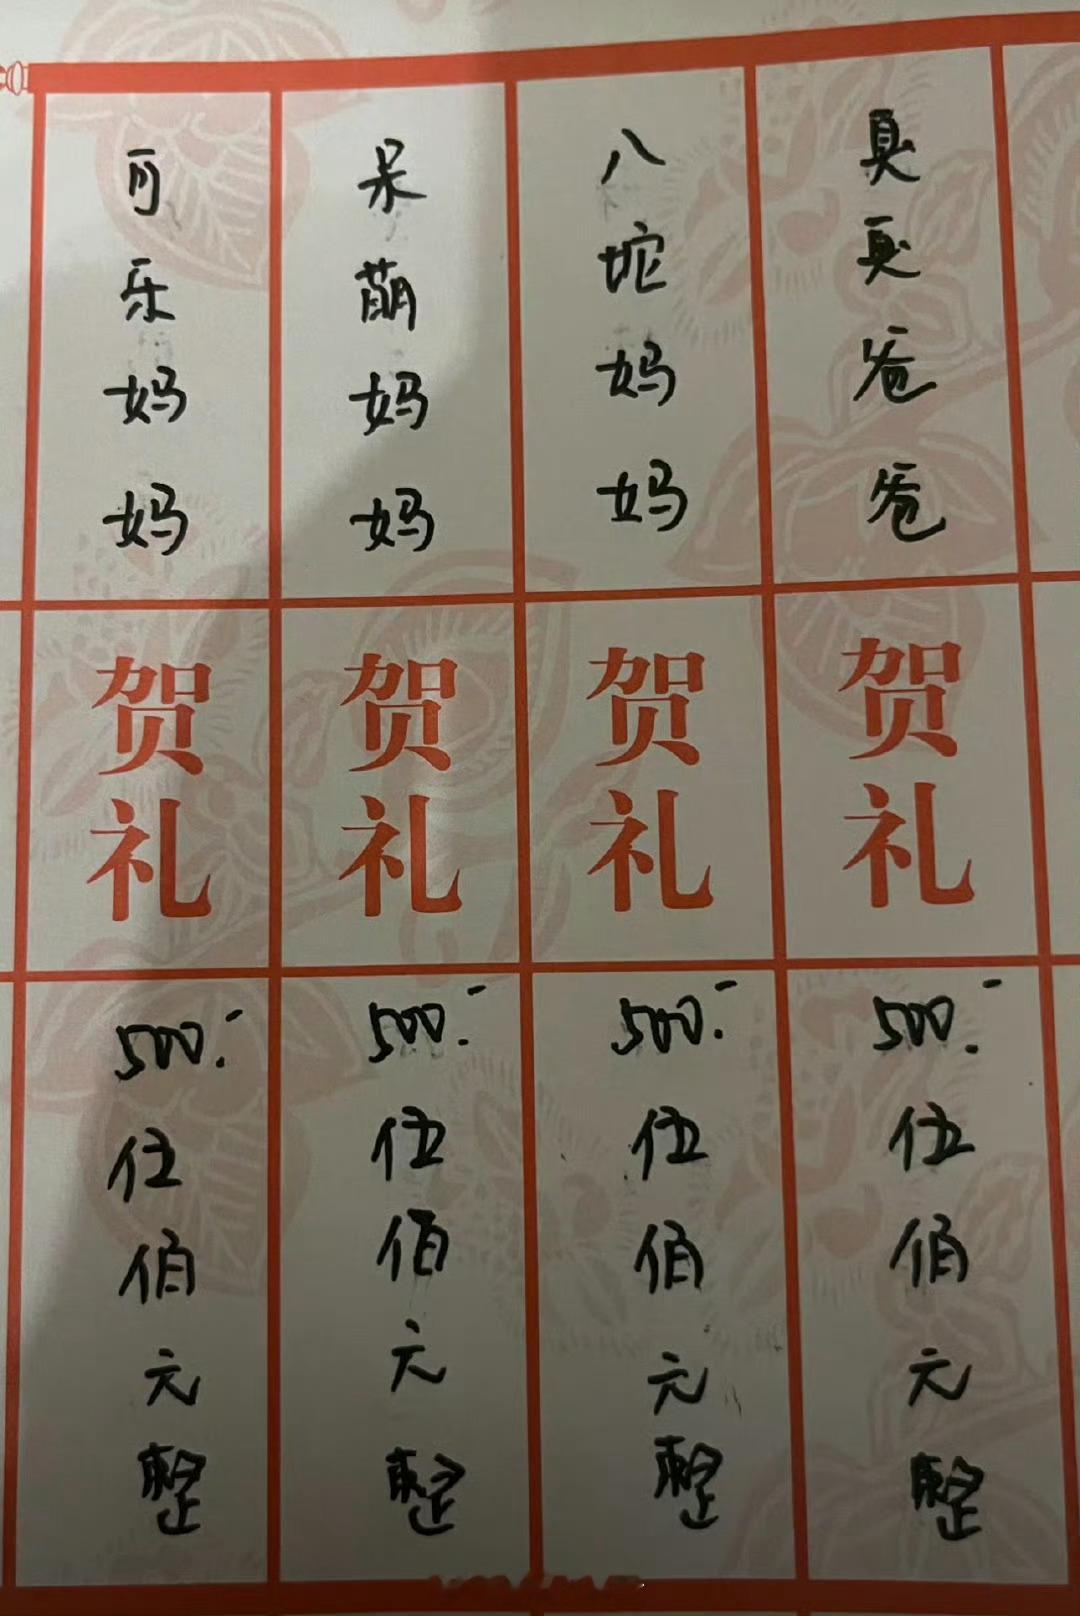 夏夏爸爸
贺礼
500.-
伍佰元整
八坨妈妈
贺礼
500.-
伍佰元整
呆萌妈妈
贺礼
500.-
伍佰元整
可乐妈妈
贺礼
500.-
伍佰元整